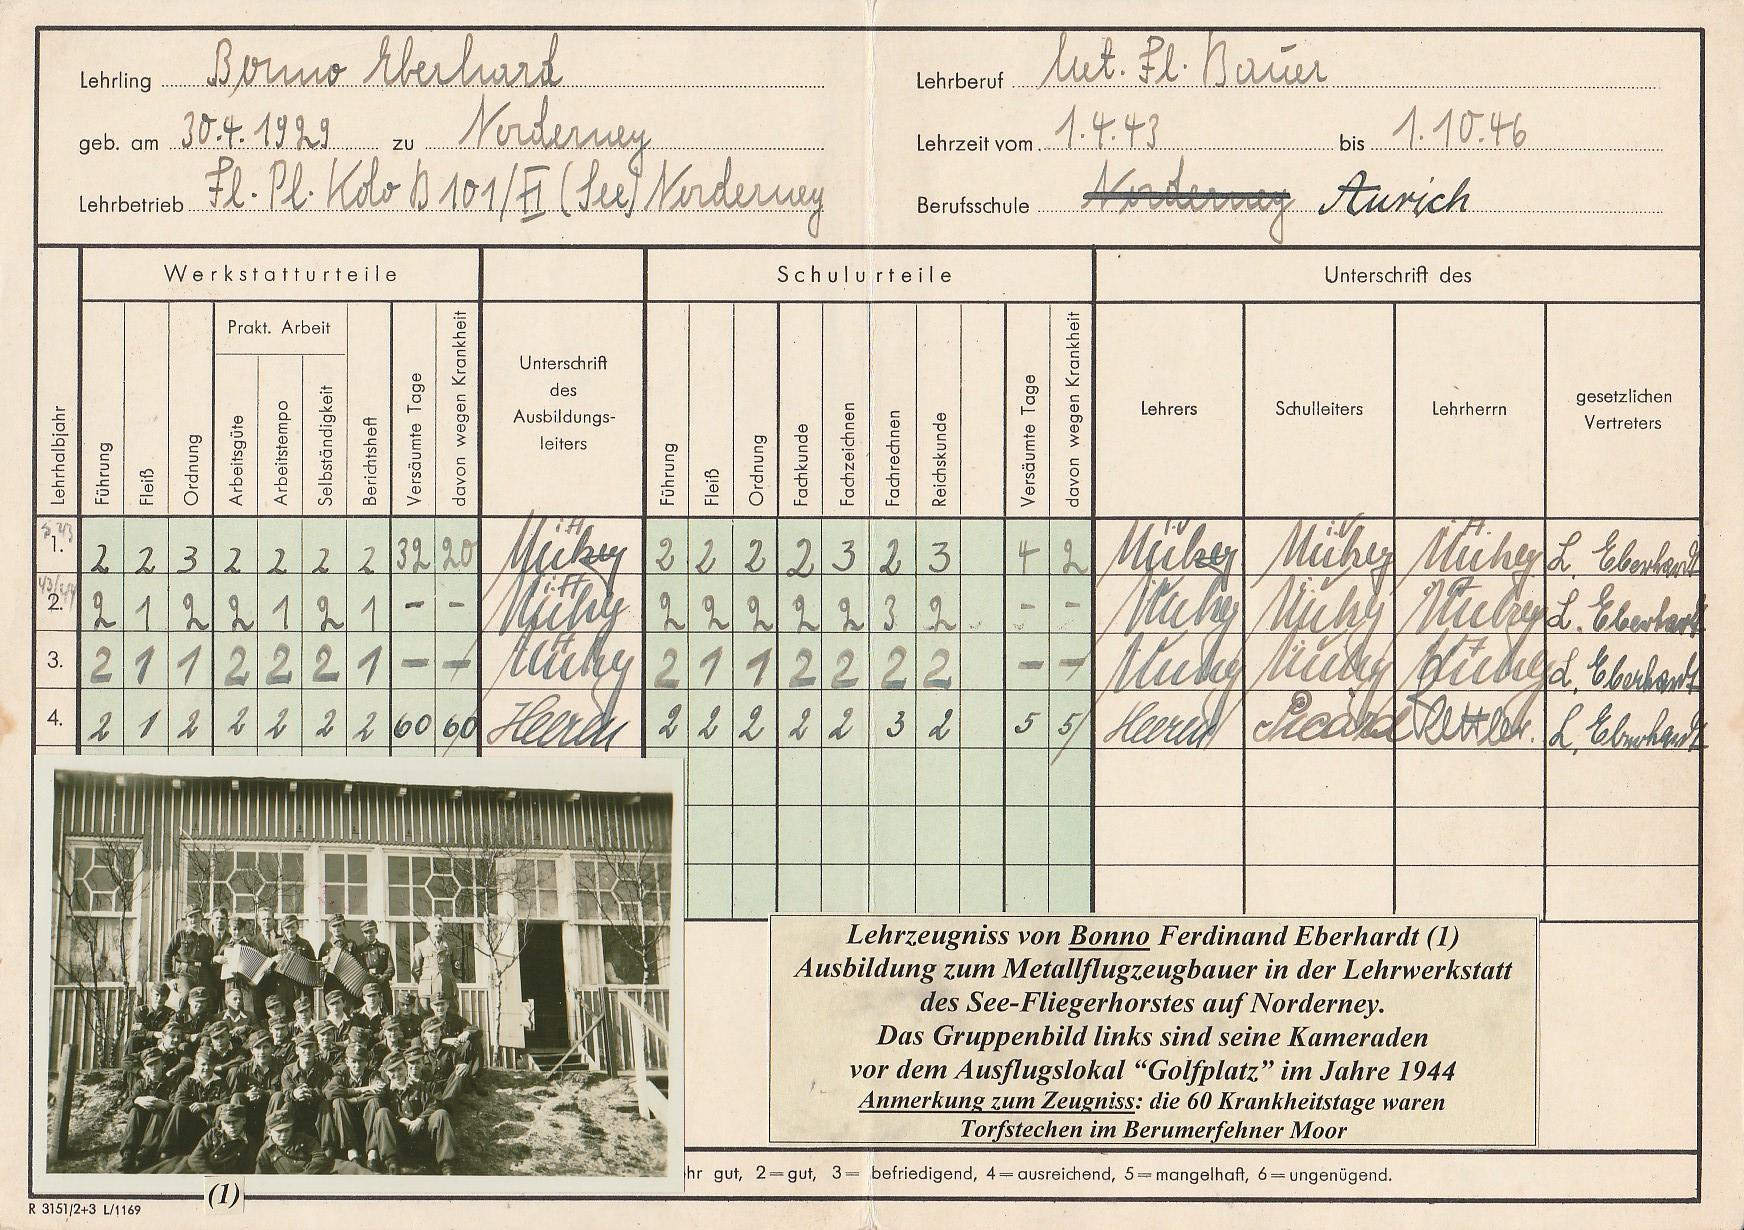 Lehrling Bonno Eberhard
Lehrberuf Met. Fl. Bauer
geb. am 30.4.1929 zu Norderney
Lehrzeit vom 1.4.43 bis 1.10.46
Lehrbetrieb Fl. Pl. Kdo B 101/II (See) Norderney
Berufsschule Norderney Aurich
Werkstatturteile
Schulurteile
Unterschrift des
Lehrhalbjahr
Führung
Fleiß
Ordnung
Prakt. Arbeit
Arbeitsgüte
Arbeitstempo
Selbständigkeit
Berichtsheft
Versäumte Tage
davon wegen Krankheit
Unterschrift
des
Ausbildungs-
leiters
Führung
Fleiß
Ordnung
Fachkunde
Fachzeichnen
Fachrechnen
Reichskunde
Versäumte Tage
davon wegen Krankheit
Lehrers
Schulleiters
Lehrherrn
gesetzlichen
Vertreters
1. 2 2 3 2 2 2 2 32 20 2 2 2 2 3 2 3 4 2 L. Eberhardt
2. 2 1 2 2 1 2 1 - - 2 2 2 2 2 3 2 - - L. Eberhardt
3. 2 1 1 2 2 2 1 - - 2 1 1 2 2 2 2 - - L. Eberhardt
4. 2 1 2 2 2 2 2 60 60 Heeren 2 2 2 2 2 3 2 5 5 Heeren Picard L. Eberhardt
Lehrzeugniss von Bonno Ferdinand Eberhardt (1)
Ausbildung zum Metallflugzeugbauer in der Lehrwerkstatt
des See-Fliegerhorstes auf Norderney.
Das Gruppenbild links sind seine Kameraden
vor dem Ausflugslokal “Golfplatz” im Jahre 1944
Anmerkung zum Zeugniss: die 60 Krankheitstage waren
Torfstechen im Berumerfehner Moor
hr gut, 2=gut, 3= befriedigend, 4=ausreichend, 5=mangelhaft, 6=ungenügend.
(1)
R 3151/2+3 L/1169